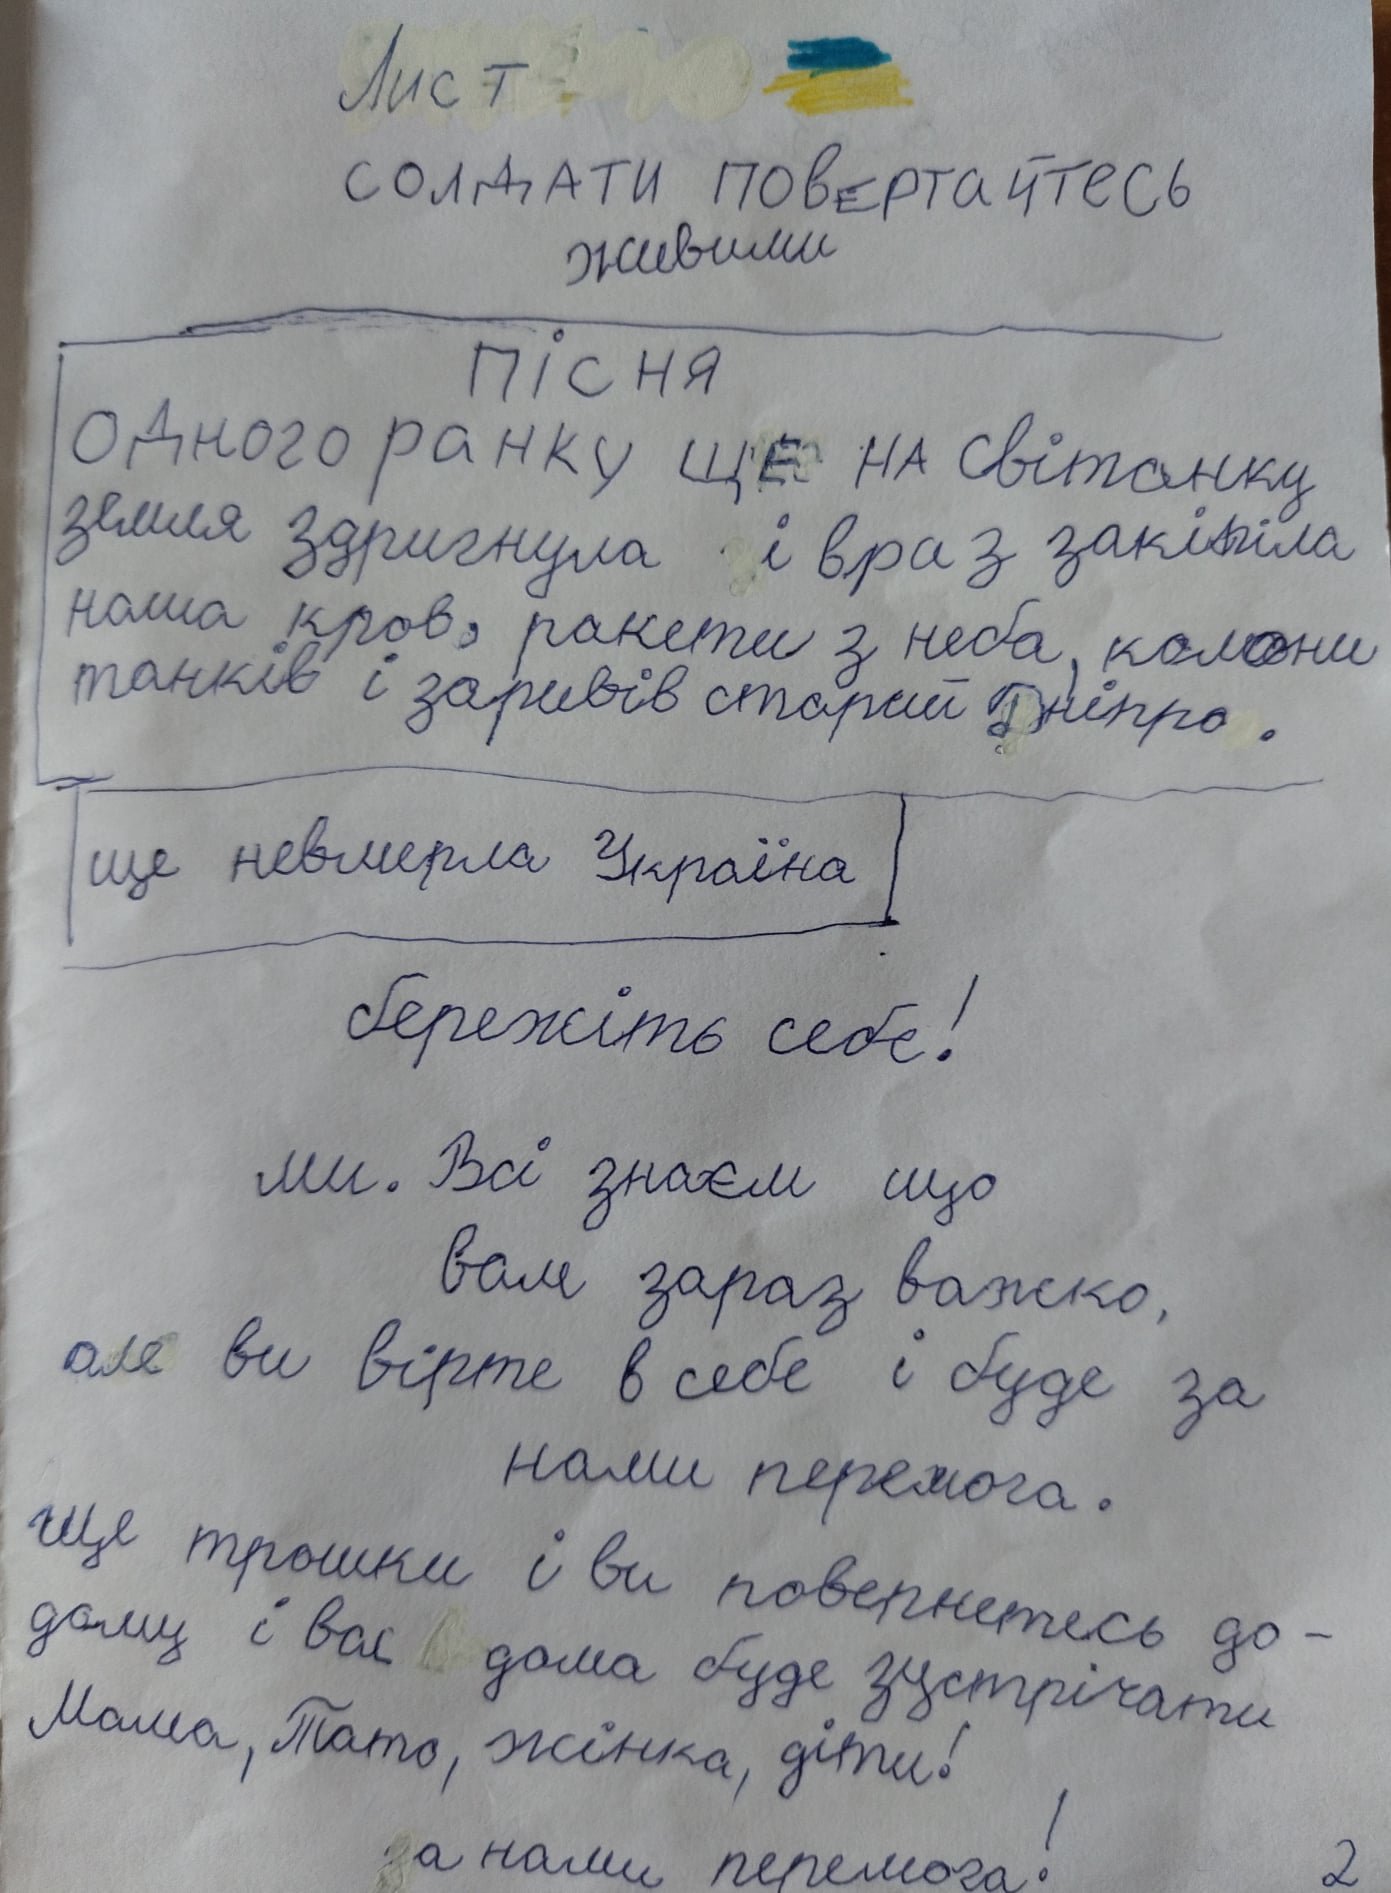 Лист
СОЛДАТИ ПОВЕРТАЙТЕСЬ
живими
ПІСНЯ
Одного ранку ЩЕ НА Світанку
земля здригнула і враз закіпіла
наша кров, ракети з неба, колони
танків і заривів старий Дніпро.
ще невмерла Україна
бережіть себе!
ми. Всі знаєм що
вам зараз важко,
але ви вірте в себе і буде за
нами перемога.
ще трошки і ви повернетесь до-
дому і вас дома буде зустрічати
Мама, Тато, жінка, діти!
за нами перемога!
2